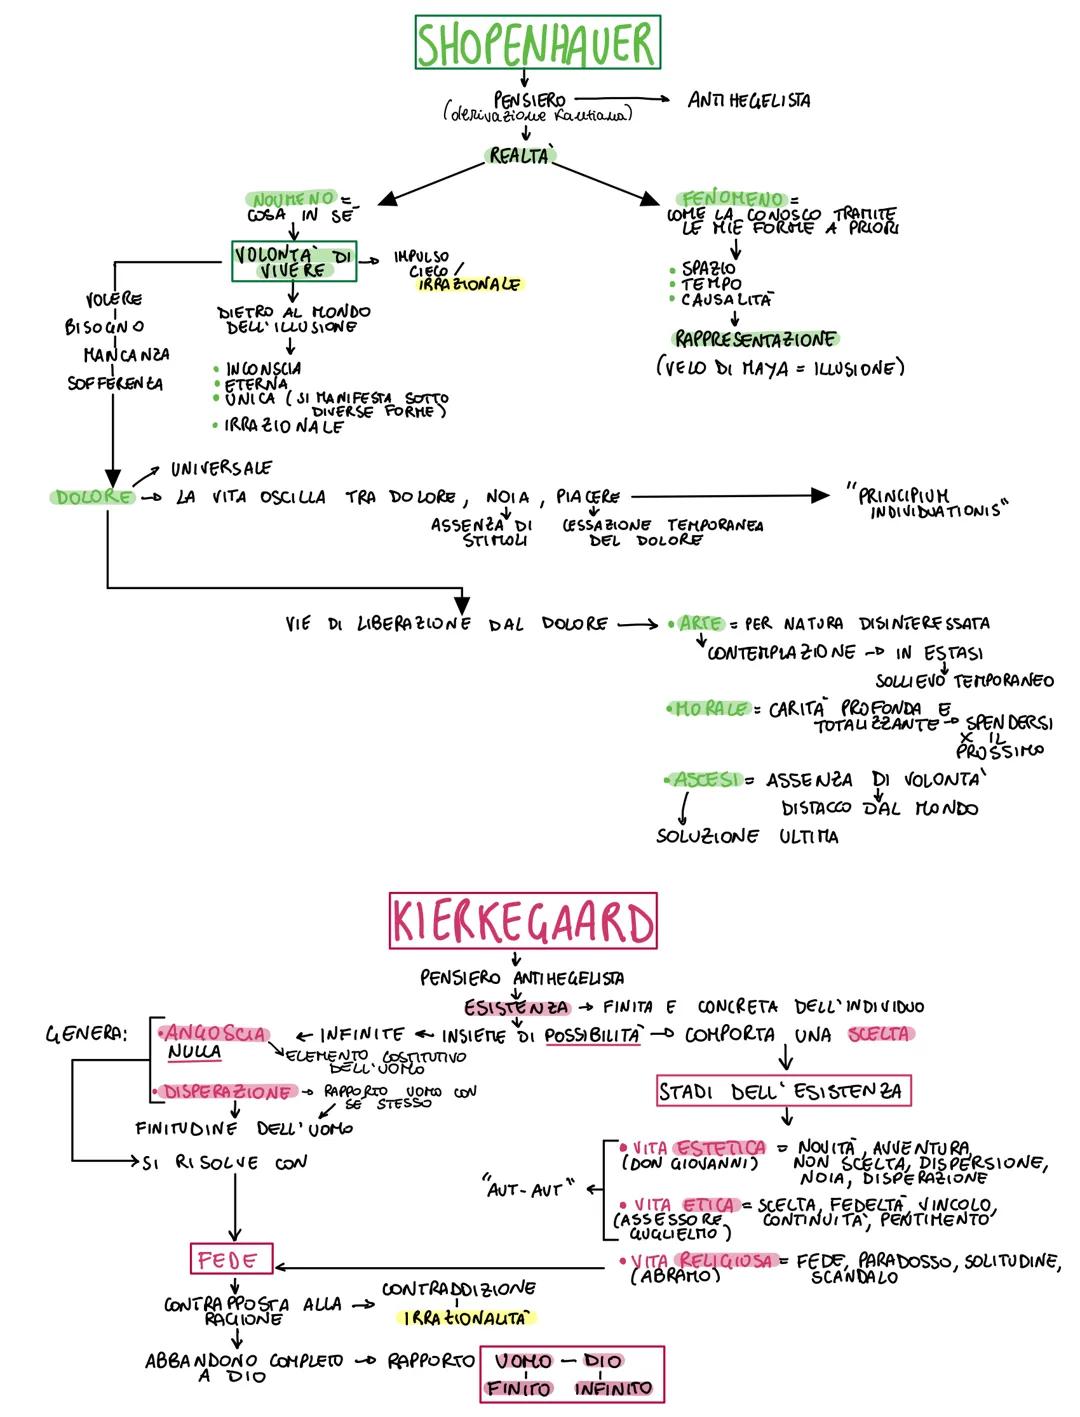 SHOPENHAUER
PENSIERO → ANTIHEGELISTA
(derivazione kantiana)
REALTÀ
NOUMENO =
COSA IN SÉ
FENOMENO =
COME LA CONOSCO TRAMITE
LE MIE FORME A PRIORI
VOLONTÀ DI
VIVERE
IMPULSO
CIECO /
IRRAZIONALE
• SPAZIO
• TEMPO
• CAUSALITÀ
RAPPRESENTAZIONE
(VELO DI MAYA = ILLUSIONE)
VOLERE
BISOGNO
MANCANZA
SOFFERENZA
DIETRO AL MONDO
DELL'ILLUSIONE
• INCONSCIA
• ETERNA
• UNICA (SI MANIFESTA SOTTO
DIVERSE FORME)
• IRRAZIONALE
UNIVERSALE
DOLORE → LA VITA OSCILLA TRA DOLORE, NOIA, PIACERE
"PRINCIPIUM
INDIVIDUATIONIS"
ASSENZA DI
STIMOLI
CESSAZIONE TEMPORANEA
DEL DOLORE
VIE DI LIBERAZIONE DAL DOLORE → • ARTE = PER NATURA DISINTERESSATA
CONTEMPLAZIONE → IN ESTASI
SOLLIEVO TEMPORANEO
• MORALE = CARITÀ PROFONDA E
TOTALIZZANTE → SPENDERSI
X IL
PROSSIMO
• ASCESI = ASSENZA DI VOLONTÀ
DISTACCO DAL MONDO
SOLUZIONE ULTIMA
KIERKEGAARD
PENSIERO ANTIHEGELISTA
ESISTENZA → FINITA E CONCRETA DELL'INDIVIDUO
GENERA: • ANGOSCIA ← INFINITE ← INSIEME DI POSSIBILITÀ → COMPORTA UNA SCELTA
NULLA
ELEMENTO COSTITUTIVO
DELL'UOMO
• DISPERAZIONE → RAPPORTO UOMO CON
SE STESSO
FINITUDINE DELL'UOMO
SI RISOLVE CON
STADI DELL'ESISTENZA
"AUT-AUT"
• VITA ESTETICA = NOVITÀ, AVVENTURA,
(DON GIOVANNI) NON SCELTA, DISPERSIONE,
NOIA, DISPERAZIONE
• VITA ETICA = SCELTA, FEDELTÀ, VINCOLO,
(ASSESSORE CONTINUITÀ, PENTIMENTO
GUGLIELMO)
• VITA RELIGIOSA = FEDE, PARADOSSO, SOLITUDINE,
(ABRAMO) SCANDALO
FEDE
CONTRAPPOSTA ALLA
RAGIONE
CONTRADDIZIONE
IRRAZIONALITÀ
ABBANDONO COMPLETO → RAPPORTO UOMO — DIO
A DIO
FINITO INFINITO